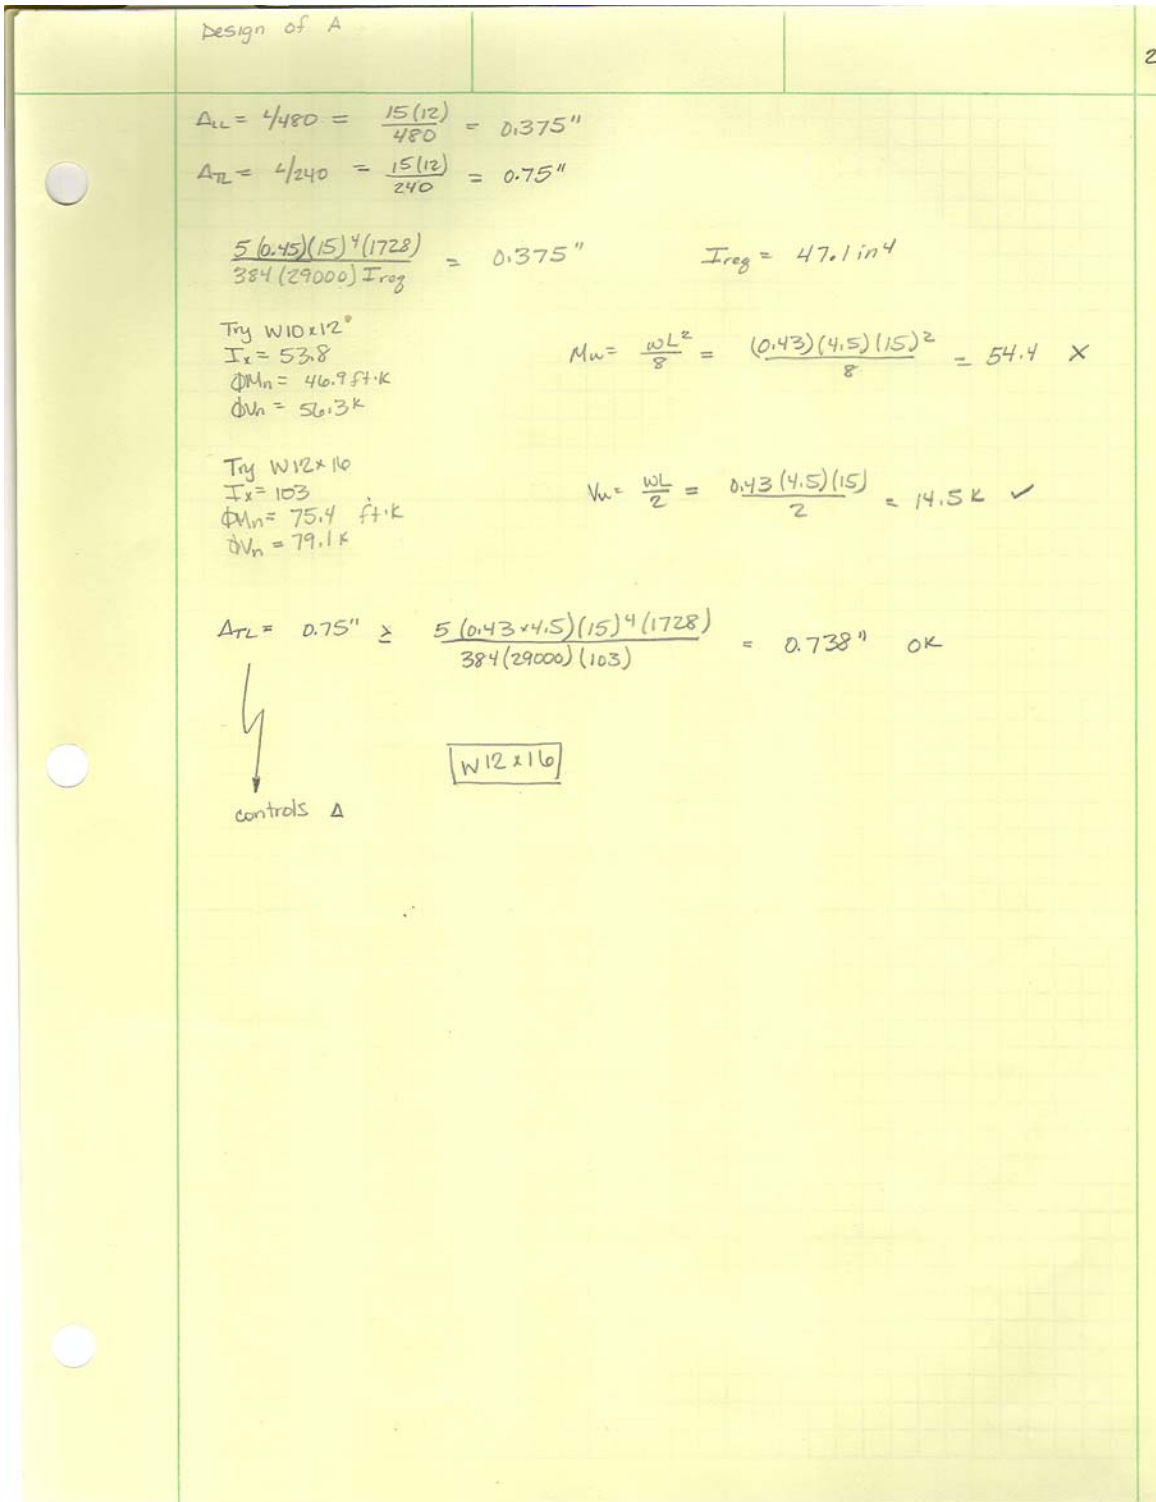 Design of A
2
Δ_LL = L/480 = 15(12)/480 = 0.375"
Δ_TL = L/240 = 15(12)/240 = 0.75"
5(0.45)(15)^4(1728)/384(29000)Ireq = 0.375" Ireq = 47.1 in^4
Try W10x12
Ix = 53.8
ΦMn = 46.9 ft·k
ΦVn = 56.3k
Mu = wL^2/8 = (0.43)(4.5)(15)^2/8 = 54.4 X
Try W12x16
Ix = 103
ΦMn = 75.4 ft·k
ΦVn = 79.1k
Vu = wL/2 = 0.43(4.5)(15)/2 = 14.5k ✓
Δ_TL = 0.75" ≥ 5(0.43x4.5)(15)^4(1728)/384(29000)(103) = 0.738" OK
W12x16
controls Δ